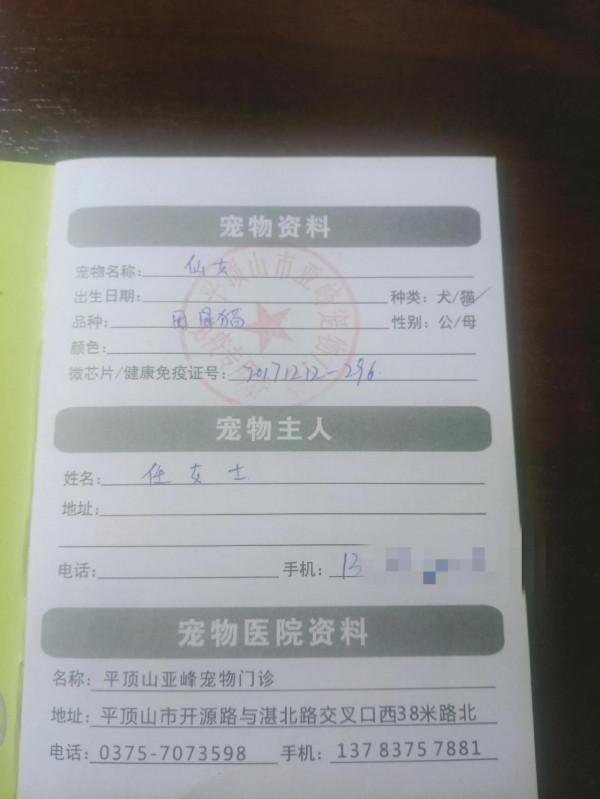 宠物资料
宠物名称: 仙女
出生日期: 种类: 犬/猫
品种: 田园猫 性别: 公/母
颜色:
微芯片/健康免疫证号: 20171212-296
平顶山市亚峰宠物门诊
宠物主人
姓名: 任女士
地址:
电话: 手机: 13
宠物医院资料
名称: 平顶山亚峰宠物门诊
地址: 平顶山市开源路与湛北路交叉口西38米路北
电话: 0375-7073598 手机: 137 8375 7881